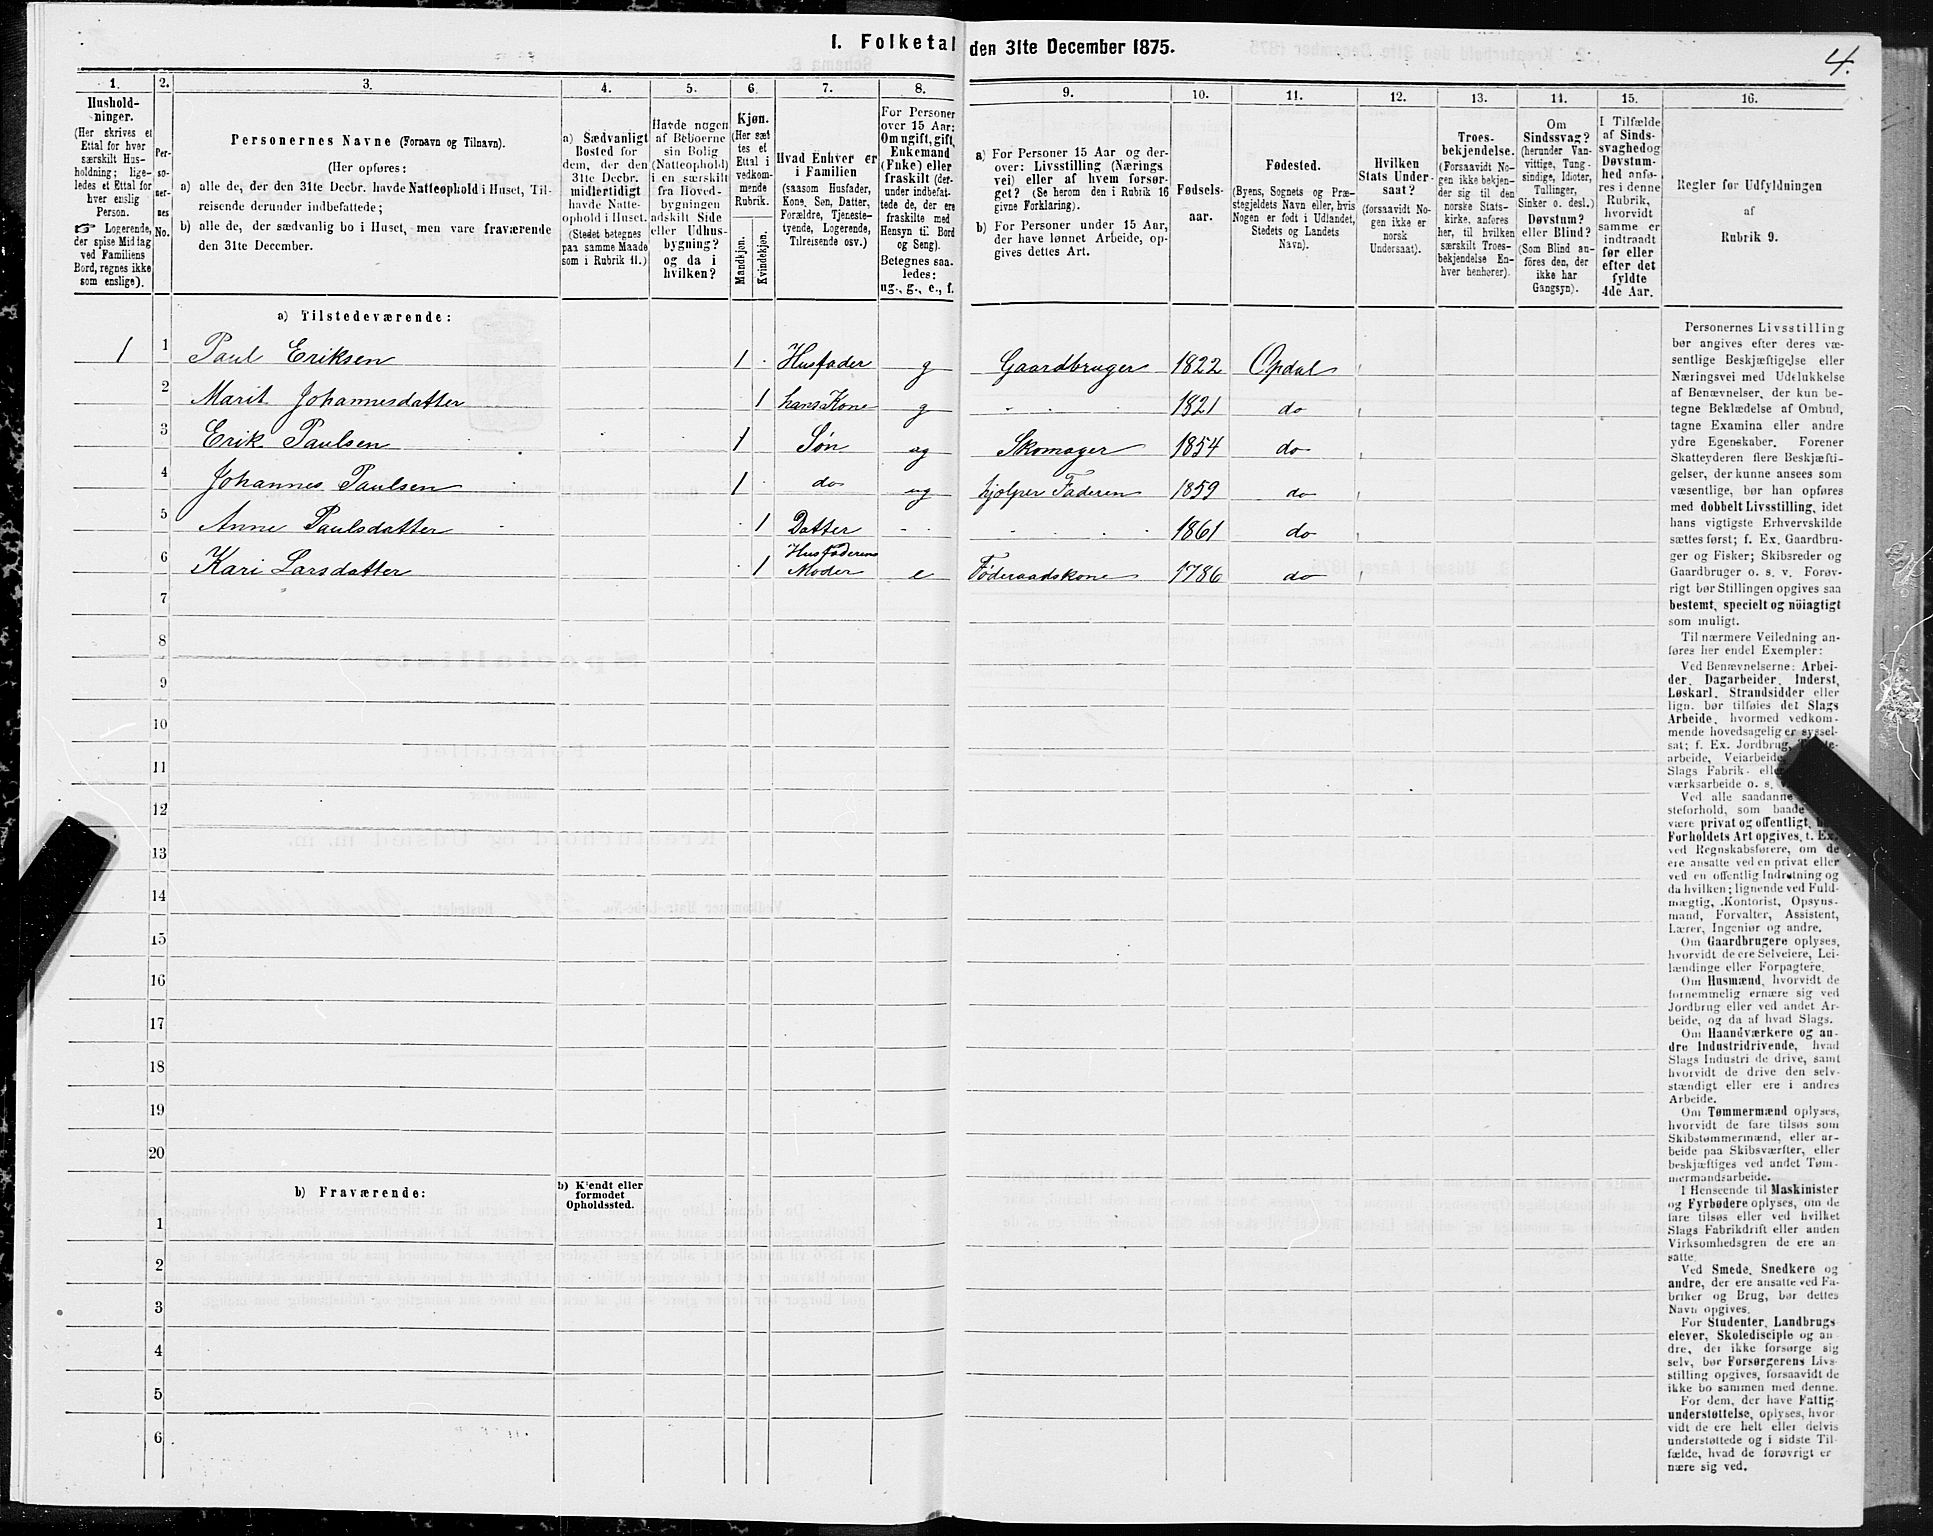 I. Folketal den 31te December 1875.
4.
1.
Hushold-
ninger.
(Her skrives et
Ettal for hver
særskilt Hus-
holdning; lige-
ledes et Ettal for
hver enslig
Person.
☞ Logerende,
der spise Middag
ved Familiens
Bord, regnes ikke
som enslige).
2.
Per-
so-
ner-
nes
No.
3.
Personernes Navne (Fornavn og Tilnavn).
(Her opføres:
a) alle de, der den 31te Decbr. havde Natteophold i Huset, Til-
reisende derunder indbefattede;
b) alle de, der sædvanlig bo i Huset, men vare fraværende
den 31te December.
4.
a) Sædvanligt
Bosted for
dem, der den
31te Decbr.
midlertidigt
havde Natte-
ophold i Huset.
(Stedet betegnes
paa samme Maade
som i Rubrik 11.)
5.
Havde nogen
af Beboerne
sin Bolig
(Natteophold)
i en særskilt
fra Hoved-
bygningen
adskilt Side
eller Udhus-
bygning?
og da i
hvilken?
6.
Kjøn.
(Her sæt
tes et
Ettal i
vedkom-
mende
Rubrik.
Mandkjøn.
Kvindekjøn.
7.
Hvad Enhver er
i Familien
(saasom Husfader,
Kone, Søn, Datter,
Forældre, Tjeneste-
tyende, Logerende,
Tilreisende osv.)
8.
For Personer
over 15 Aar:
Om ugift, gift,
Enkemand
(Enke) eller
fraskilt (der-
under indbefat-
tede de, der ere
fraskilte med
Hensyn til Bord
og Seng).
Betegnes saa-
ledes:
ug., g., e., f.
9.
a) For Personer 15 Aar og der-
over: Livsstilling (Nærings
vei) eller af hvem forsør-
get? (Se herom den i Rubrik 16
givne Forklaring).
b) For Personer under 15 Aar,
der have lønnet Arbeide, op-
gives dettes Art.
10.
Fødsels-
aar.
11.
Fødested.
(Byens, Sognets og Præ-
stegjeldets Navn eller, hvis
Nogen er født i Udlandet,
Stedets og Landets
Navn).
12.
Hvilken
Stats Under-
saat?
(forsaavidt No-
gen ikke er
norsk
Undersaat).
13.
Troes-
bekjendelse.
(Forsaavidt No-
gen ikke bekjen-
der sig til den
norske Stats-
kirke, anføres
her, til hvilken
særskilt Troes-
bekjendelse En-
hver henhører).
14.
Om
Sindssvag?
(herunder Van-
vittige, Tung-
sindige, Idioter,
Tullinger,
Sinker o. desl.)
Døvstum?
eller Blind?
(Som Blind an-
føres den, der
ikke har
Gangsyn).
15.
I Tilfælde
af Sinds-
svaghed og
Døvstum-
hed anfø-
res i denne
Rubrik,
hvorvidt
samme er
indtraadt
før eller
efter det
fyldte
4de Aar.
16.
Regler for Udfyldningen
af
Rubrik 9.
a) Tilstedeværende:
1 1 Paul Eriksen 1 Husfader g Gaardbruger 1822 Opdal
2 Marit Johannesdatter 1 hans Kone g 1821 do
3 Erik Paulsen 1 Søn ug Skomager 1854 do
4 Johannes Paulsen 1 do ug hjelper Faderen 1859 do
5 Anne Paulsdatter 1 Datter 1861 do
6 Kari Larsdatter 1 Husfaderens Moder e Føderaadskone 1786 do
7
8
9
10
11
12
13
14
15
16
17
18
19
20
b) Fraværende:
b) Kjendt eller
formodet
Opholdssted.
1
2
3
4
5
6
Personernes Livsstilling
bør angives efter deres væ-
sentlige Beskjæftigelse eller
Næringsvei med Udelukkelse
af Benævnelser, der kun be-
tegne Beklædelse af Ombud,
tagne Examina eller andre
ydre Egenskaber. Forener
Skatteyderen flere Beskjæfti-
gelser, der kunne ansees som
væsentlige, bør han opføres
med dobbelt Livsstilling, idet
hans vigtigste Erhvervskilde
sættes først; f. Ex. Gaardbru-
ger og Fisker; Skibsreder og
Gaardbruger o. s. v. Forøv-
rigt bør Stillingen opgives saa
bestemt, specielt og nöiagtigt
som muligt.
Til nærmere Veiledning an-
føres her endel Exempler:
Ved Benævnelserne: Arbei-
der, Dagarbeider, Inderst,
Løskarl, Strandsidder eller
lign. bør tilføies det Slags
Arbeide, hvormed vedkom-
mende hovedsagelig er syssel-
sat; f. Ex. Jordbrug,
arbeide, Veiarbeide,
Slags Fabrik- eller
værksarbeide o. s.
Ved alle saadanne
steforhold, som baade
være privat og offentligt,
Forholdets Art opgives, t. Ex.
ved Regnskabsførere, om de
ere ansatte ved en privat eller
ved en offentlig Indretning og
da hvilken; lignende ved Fuld-
mægtig, Kontorist, Opsyns-
mand, Forvalter, Assistent,
Lærer, Ingeniør og andre.
Om Gaardbrugere oplyses,
hvorvidt de ere Selveiere, Lei-
lændinge eller Forpagtere.
Om Husmænd, hvorvidt de
fornemmelig ernære sig ved
Jordbrug eller ved andet Ar-
beide, og da af hvad Slags.
Om Haandværkere og an-
dre Industridrivende, hvad
Slags Industri de drive, samt
hvorvidt de drive den selv-
stændigt eller ere i andres
Arbeide.
Om Tømmermænd oplyses,
hvorvidt de fare tilsøs som
Skibstømmermænd, eller ar-
beide paa Skibsværfter, eller
beskjæftiges ved andet Tøm-
mermandsarbeide.
I Henseende til Maskinister
og Fyrbødere oplyses, om de
fare tilsøs eller ved hvilket
Slags Fabrikdrift eller anden
Virksomhedsgren de ere an-
satte.
Ved Smede, Snedkere og
andre, der ere ansatte ved Fa-
briker og Brug, bør dettes
Navn opgives.
For Studenter, Landbrugs
elever, Skoledisciple og an-
dre, der ikke forsørge sig
selv, bør Forsørgerens Livs-
stilling opgives, forsaavidt de
ikke bo sammen med denne.
For dem, der have Fattig-
understøttelse, oplyses, hvor-
vidt de ere helt eller delvis
understøttede og i sidste Til-
fælde, hvad de forøvrigt er
nære sig ved.